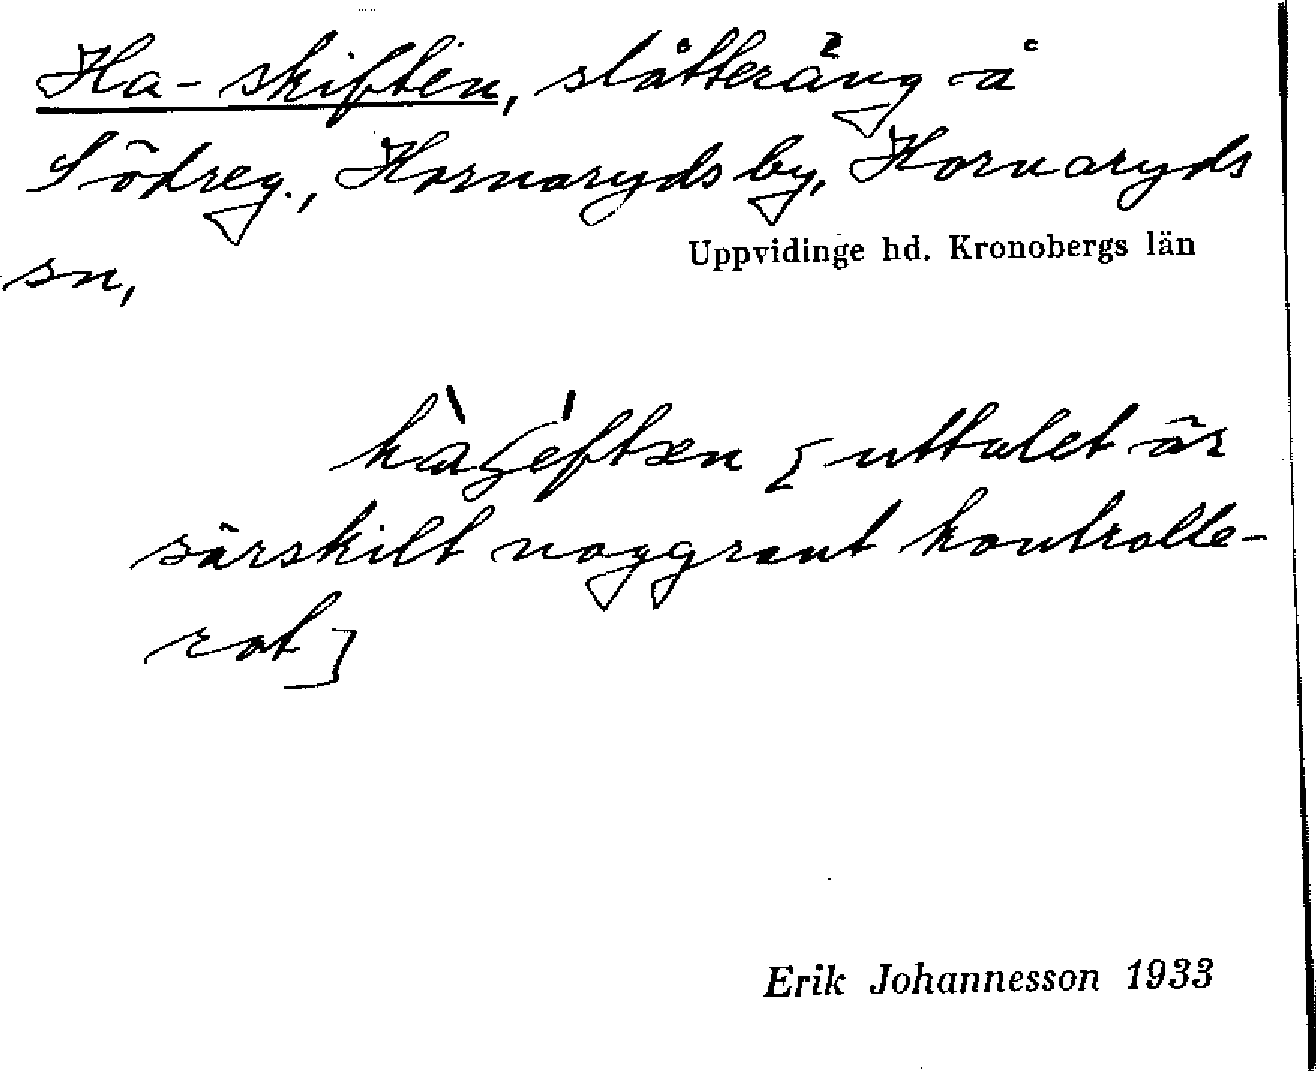 Ha-skiften, slåtteräng å
Södreg., Hornaryds by, Hornaryds
Uppvidinge hd. Kronobergs län
sn,
[uttalet är
särskilt noggrant kontrolle-
rat]
Erik Johannesson 1933